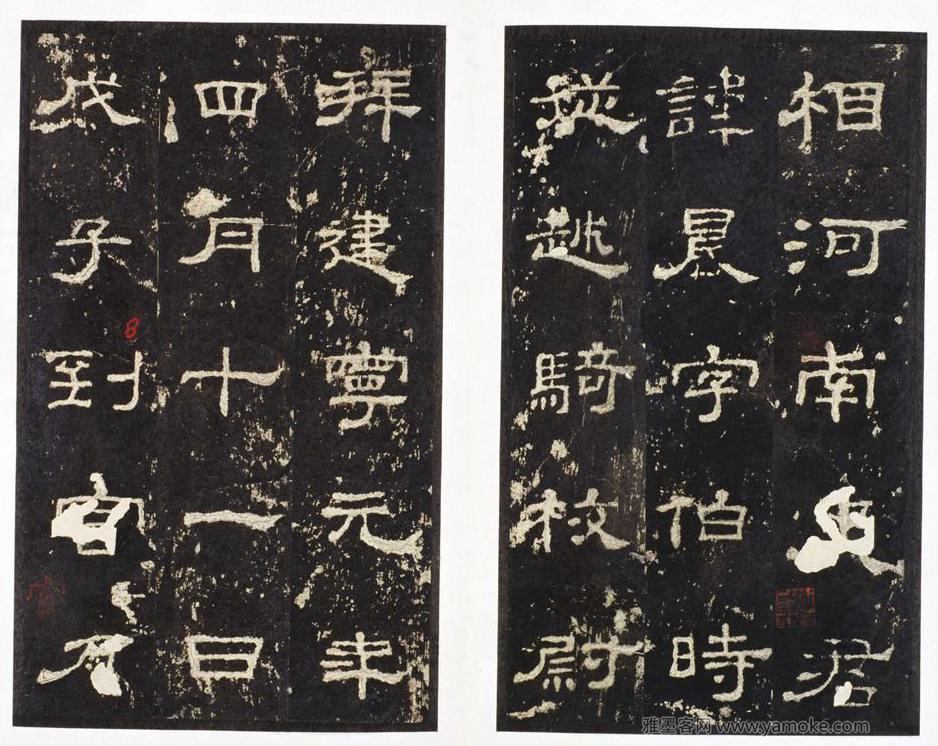 相河南史君
諱晨字伯時
從越騎校尉
拜建寧元年
四月十一日
戊子到官乃
8
雅墨客网 www.yamoke.com